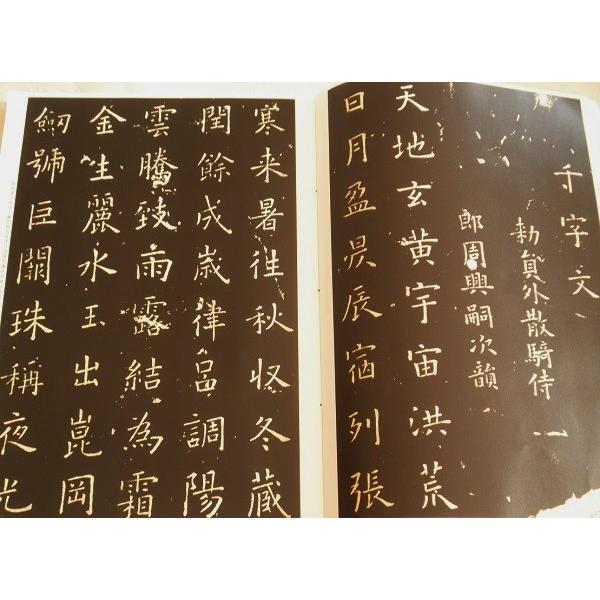 千字文
勅員外散騎侍
郎周興嗣次韻
天地玄黄宇宙洪荒
日月盈昃辰宿列張
寒来暑往秋収冬蔵
閏餘成歳律呂調陽
雲騰致雨露結為霜
金生麗水玉出崑岡
劒號巨闕珠稱夜光